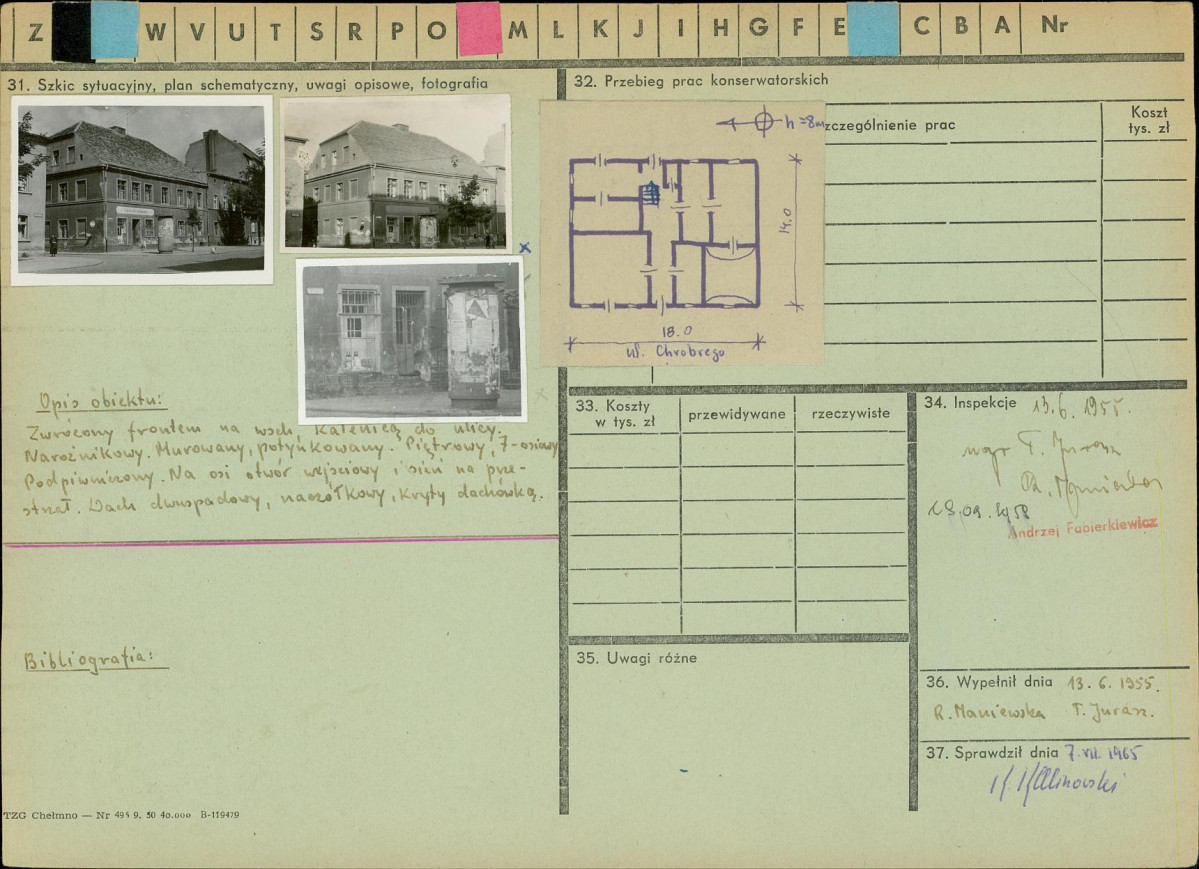 Z W V U T S R P O M L K J I H G F E C B A Nr
31. Szkic sytuacyjny, plan schematyczny, uwagi opisowe, fotografia
Opis obiektu:
Zwrócony frontem na wsch. Kalenicą do ulicy.
Narożnikowy. Murowany, potynkowany. Piętrowy, 7-osiowy
Podpiwniczony. Na osi otwór wejściowy i sień na prze-
strzał. Dach dwuspadowy, naczółkowy, kryty dachówką.
Bibliografia:
TZG Chełmno — Nr 495 9. 50 40.000 B-119479
32. Przebieg prac konserwatorskich
zczególnienie prac
Koszt
tys. zł
h=8m
14.0
18.0
ul. Chrobrego
33. Koszty
w tys. zł
przewidywane
rzeczywiste
34. Inspekcje 13.6.1955.
mgr T. Jurasz
18.09.1958
Andrzej Fabierkiewicz
35. Uwagi różne
36. Wypełnił dnia 13.6.1955.
R. Maniewska T. Jurasz.
37. Sprawdził dnia 7.VII.1965